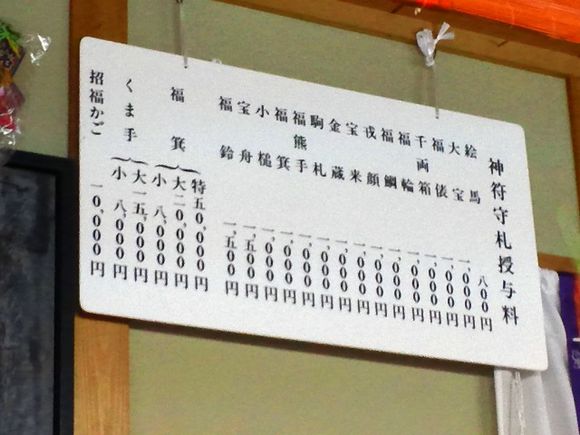 神符守札授与料
絵馬 八〇〇円
大宝 一,〇〇〇円
福俵 一,〇〇〇円
千両箱 一,〇〇〇円
福輪 一,〇〇〇円
福鯛 一,〇〇〇円
戎顔 一,〇〇〇円
宝来 一,〇〇〇円
金蔵 一,〇〇〇円
駒札 一,〇〇〇円
福熊手 一,〇〇〇円
福箕 一,〇〇〇円
小槌 一,〇〇〇円
宝舟 一,五〇〇円
福鈴 一,五〇〇円
福箕 特五〇,〇〇〇円
大二〇,〇〇〇円
小 八,〇〇〇円
くま手 大一五,〇〇〇円
小 八,〇〇〇円
招福かご 一〇,〇〇〇円